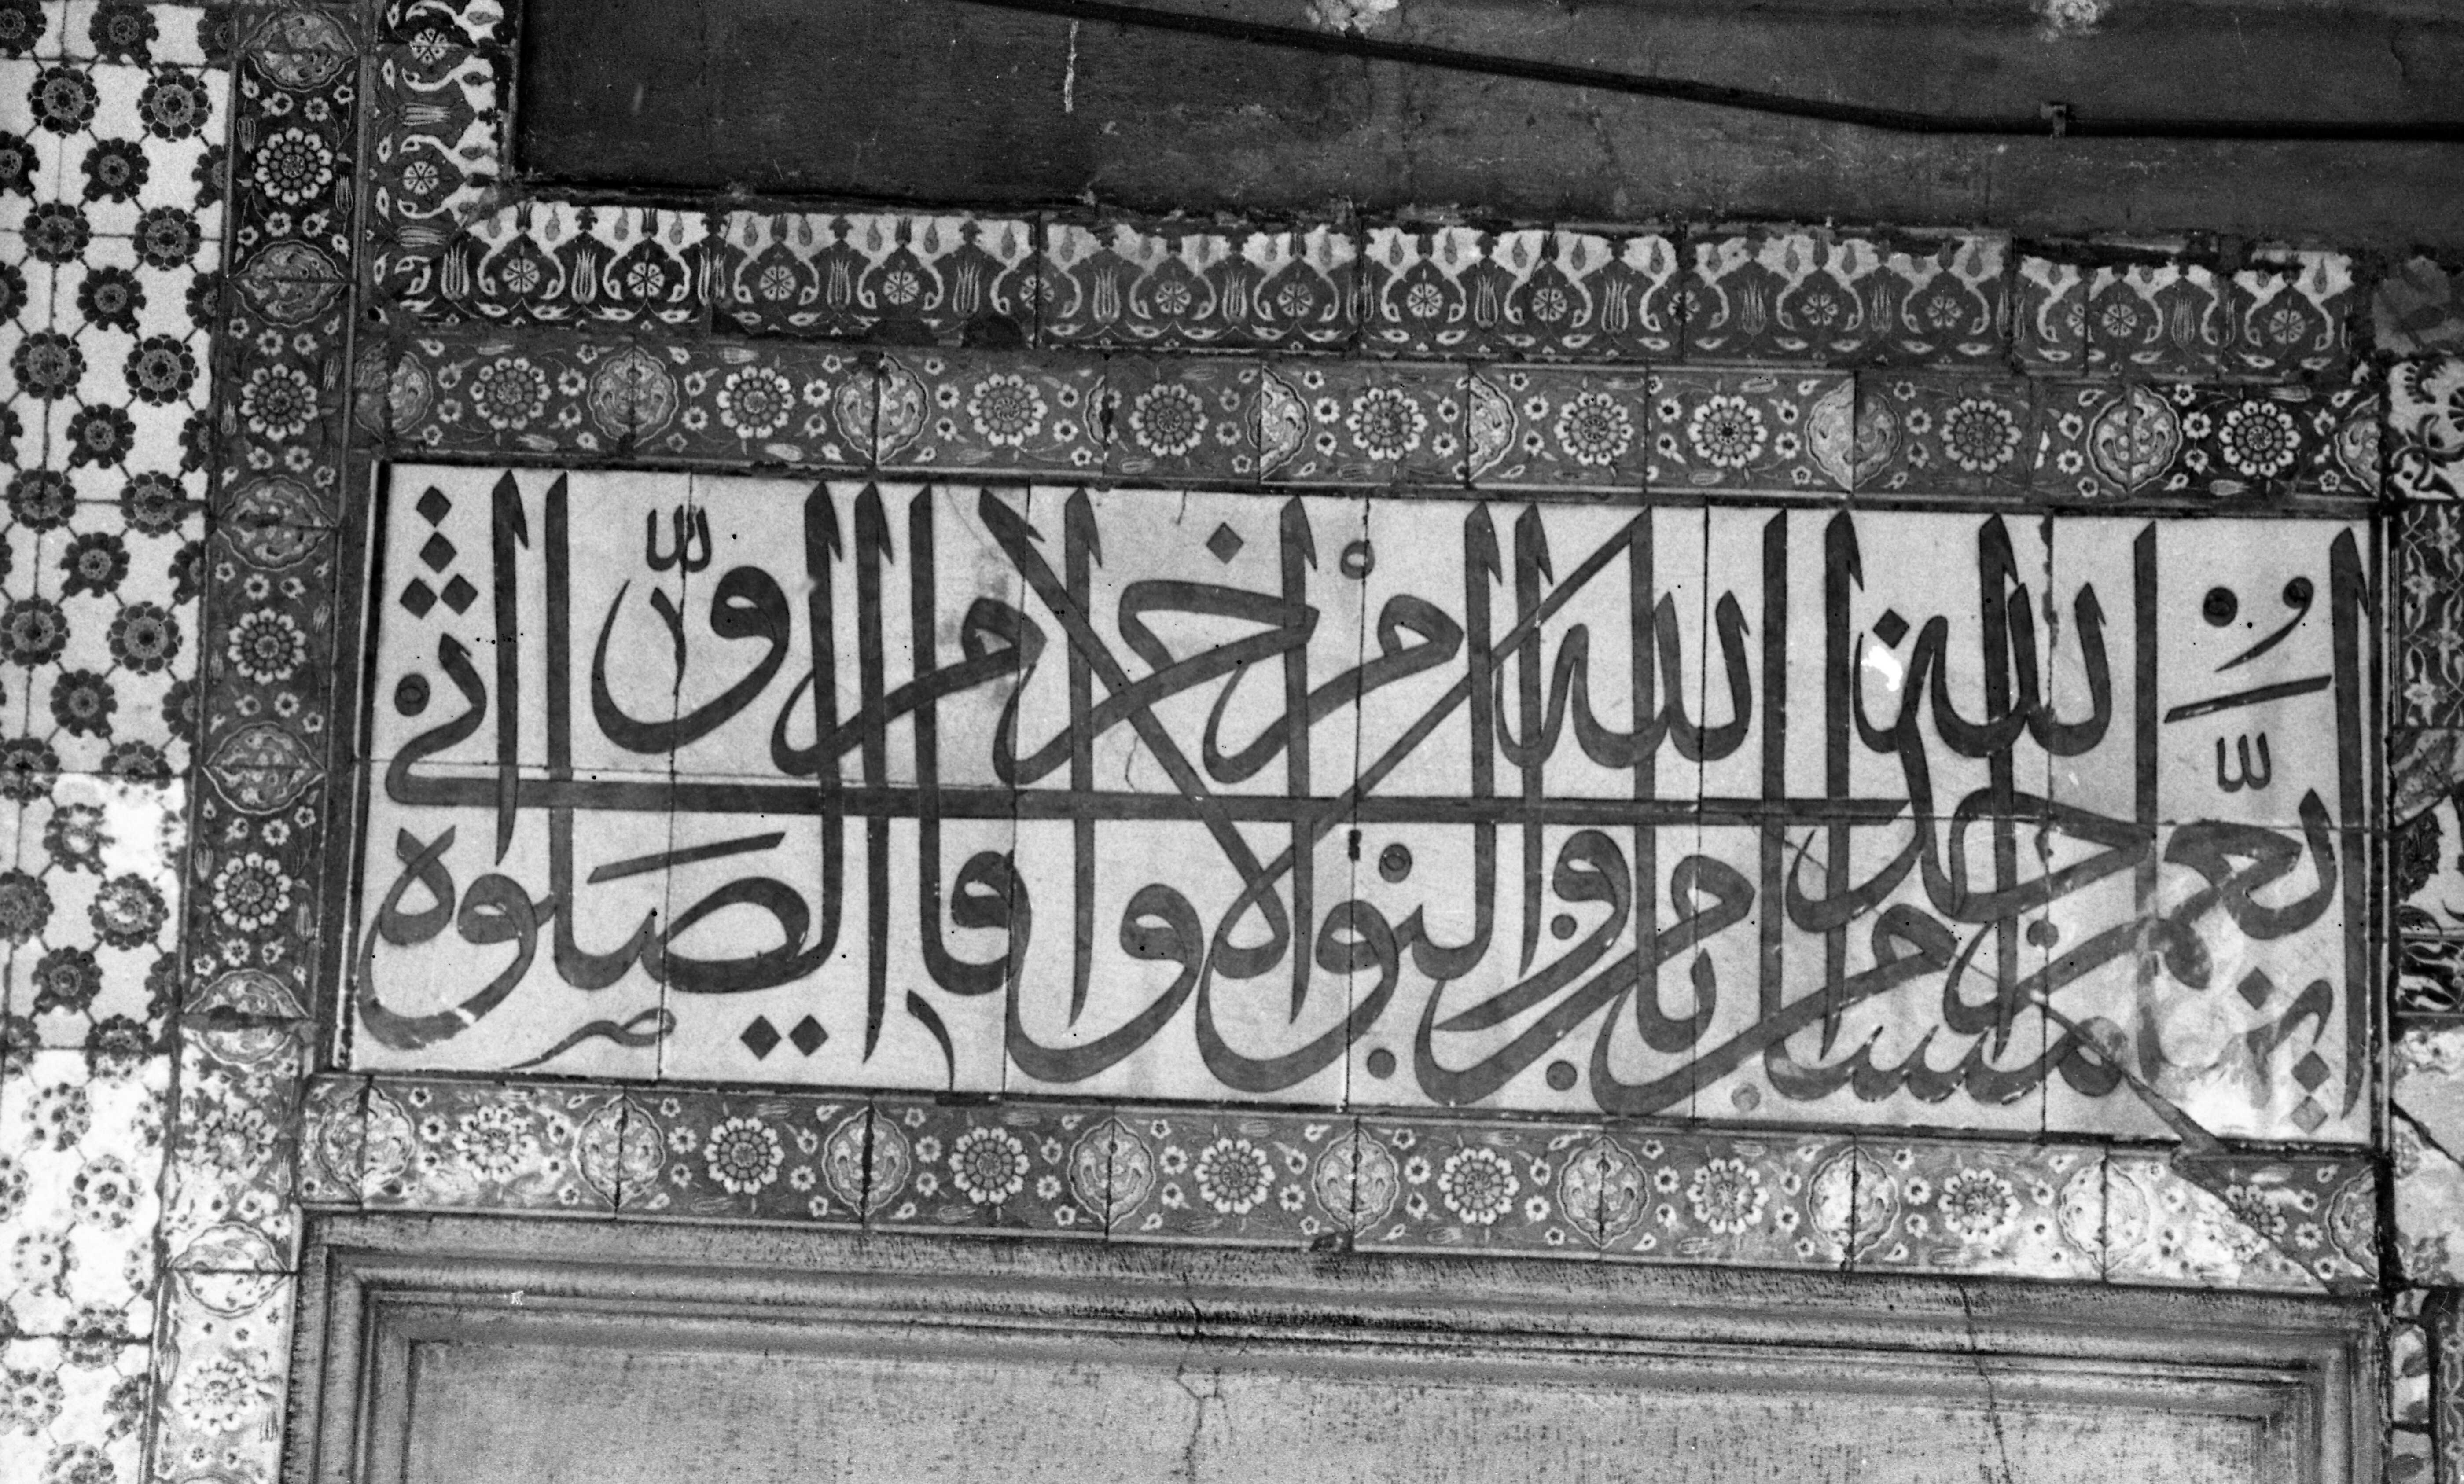 انما يعمر مساجد الله من امن بالله واليوم الاخر واقام الصلوة واتى